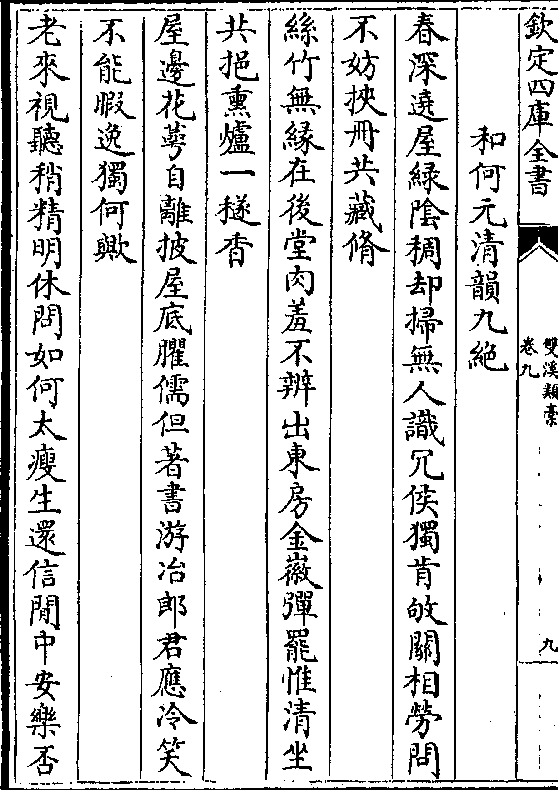 欽定四庫全書
雙溪類稾
卷九
九
和何元清韻九絶
春深遶屋緑陰稠却掃無人識冗侯獨肯敂關相勞問
不妨挾冊共藏脩
絲竹無縁在後堂肉羞不辨出東房金徽彈罷惟清坐
共挹熏爐一穟香
屋邊花萼自離披屋底臞儒但著書游冶郎君應冷笑
不能暇逸獨何歟
老來視聽稍精明休問如何太瘦生還信閒中安樂否